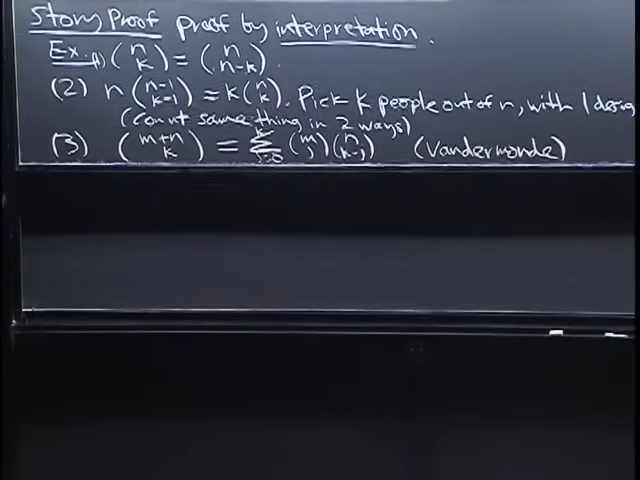 Story Proof proof by interpretation.
Ex. (1) (n k) = (n n-k).
(2) n (n-1 k-1) = k (n k). Pick k people out of n, with 1 desig
(count same thing in 2 ways)
(3) (m+n k) = Σ_{j=0}^{k} (m j)(n k-j) (Vandermonde)